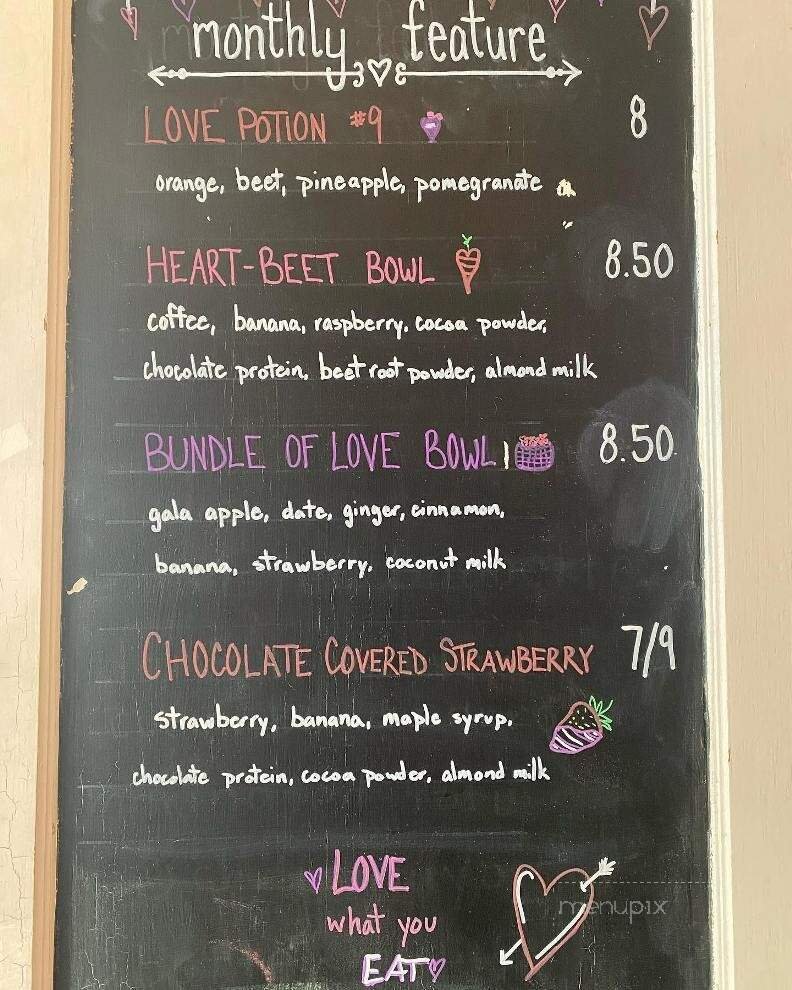 monthly feature
LOVE POTION #9 8
orange, beet, pineapple, pomegranate
HEART-BEET BOWL 8.50
coffee, banana, raspberry, cocoa powder,
chocolate protein, beet root powder, almond milk
BUNDLE OF LOVE BOWL 8.50
gala apple, date, ginger, cinnamon,
banana, strawberry, coconut milk
CHOCOLATE COVERED STRAWBERRY 7/9
strawberry, banana, maple syrup,
chocolate protein, cocoa powder, almond milk
LOVE
what you
EAT
menupix